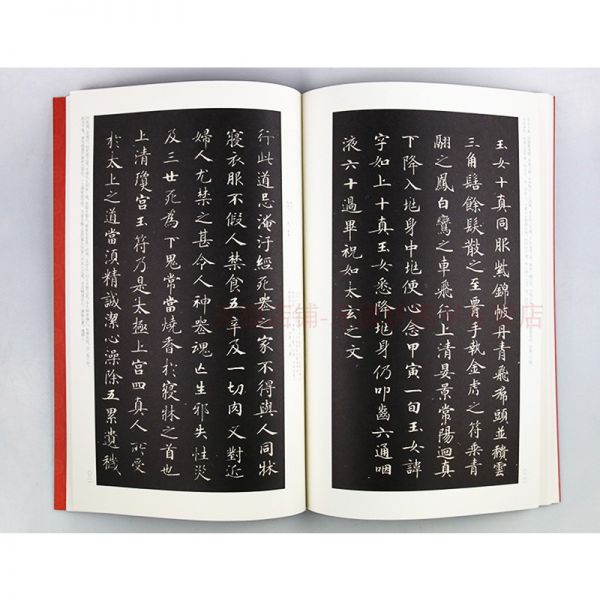 玉女十真同服紫錦帔丹青飛裙頭並頹雲
三角髻餘髮散之至要手執金虎之符乘青
翮之鳳白鸞之車飛行上清晏景常陽迴真
下降入兆身中兆便心念甲寅一旬玉女諱
字如上十真玉女悉降兆身仍叩齒六通咽
液六十過畢祝如太玄之文
行此道忌淹汙經死喪之家不得與人同牀
寢衣服不假人禁食五辛及一切肉又對近
婦人尤禁之甚令人神喪魂亡生邪失性災
及三世死為下鬼常當燒香於寢牀之首也
上清瓊宮玉符乃是太極上宮四真人所受
於太上之道當須精誠潔心澡除五累遺穢
店铺-
店